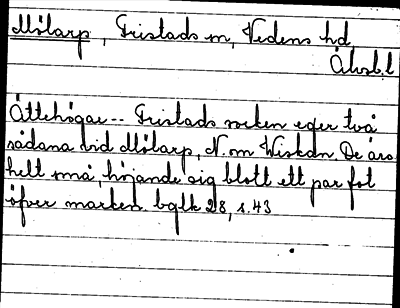 Mölarp, Fristads sn, Vedens hd
Älvsb.l
Ättehögar -- Fristads socken eger två
sådana vid Mölarp, N. om Wiskan. De äro
helt små, höjande sig blott ett par fot
öfver marken. bglk 28, s. 43